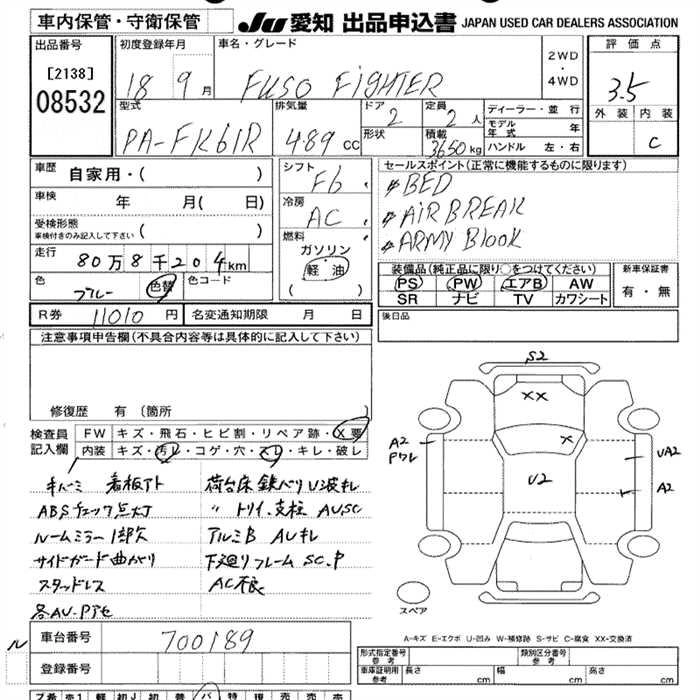 車内保管・守衛保管
JU 愛知 出品申込書 JAPAN USED CAR DEALERS ASSOCIATION
出品番号
[2138]
08532
初度登録年月
18 9 月
車名・グレード
FUSO FiGHTER
2WD
・
4WD
評価点
3.5
外装 内装
C
型式
PA-FK61R
排気量
4.89 cc
ドア
2
形状
定員
2 人
積載
3650 kg
ディーラー・並行
モデル年式 年
ハンドル 左・右
車歴
自家用・( )
車検
年 月( 日)
受検形態
車検付きのみ記入して下さい ( )
走行
80万8千204km
色
ブルー 色替
色コード
シフト
F6
冷房
AC
燃料
ガソリン
軽油
( )
セールスポイント(正常に機能するものに限ります)
#BED
#AiR BREAK
#ARMY BlooK
装備品(純正品に限り○をつけてください)
PS PW エアB AW
SR ナビ TV カワシート
新車保証書
有・無
R券 11010 円
名変通知期限 月 日
後日品
注意事項申告欄(不具合内容等は具体的に記入して下さい)
修復歴 有(箇所 )
検査員
記入欄
FW キズ・飛石・ヒビ割・リペア跡・X要
内装 キズ・汚レ・コゲ・穴・スレ・キレ・破レ
看板アト
ABSチェック点灯
ルームミラー1部欠
サイドガード曲がり
スタッドレス
荷台床鉄ベリU波札
〃 トリイ.支柱 AU.SC
アルミB AUキレ
下廻りフレーム SC.P
AC不良
S2
XX
X
U2
A2
Pワレ
UA2
A2
スペア
A-キズ E-エクボ U-凹み W-補修跡 S-サビ C-腐食 XX-交換済
車台番号 700189
登録番号
形式指定番号
参考
類別区分番号
参考
車庫証明用
参考
長さ cm 幅 cm 高さ cm